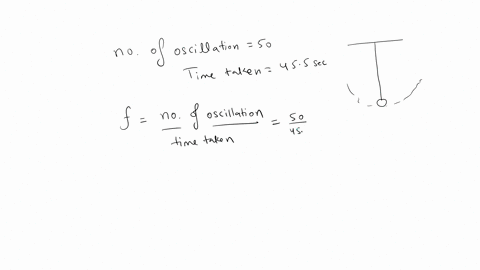 no. of oscillation = 50
Time taken = 45.5 sec
f = no. of oscillation / time taken = 50 / 45